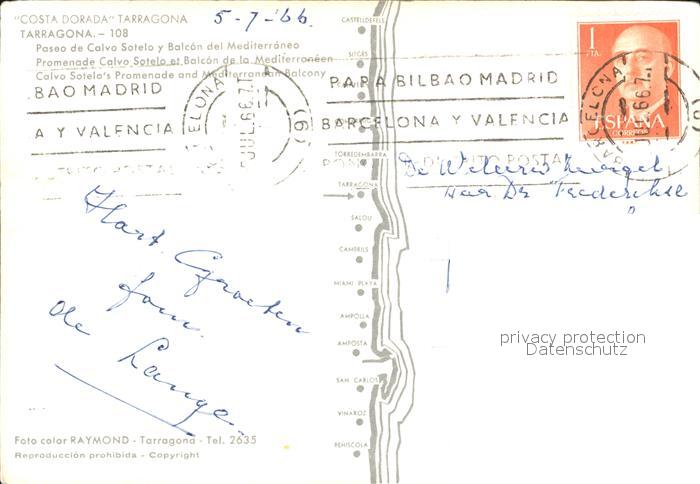 "COSTA DORADA" TARRAGONA
TARRAGONA. – 108
Paseo de Calvo Sotelo y Balcón del Mediterráneo
Promenade Calvo Sotelo et Balcón de la Mediterronéen
Calvo Sotelo's Promenade and Mediterranean Balcony
5-7-66.
BAO MADRID
A Y VALENCIA
PARA BILBAO MADRID
BARCELONA Y VALENCIA
DISTRITO POSTAL
BARCELONA
JUL. 66
(6)
1
PTA.
ESPAÑA
CORREOS
CASTELLDEFELS
SITGES
TORREDEMBARRA
TARRAGONA
SALOU
CAMBRILS
MIAMI PLAYA
AMPOLLA
AMPOSTA
SAN CARLOS
VINAROZ
PEÑISCOLA
De
Hart. Groeten
fam.
de Lange.
privacy protection
Datenschutz
Foto color RAYMOND - Tarragona - Tel. 2635
Reproducción prohibida - Copyright